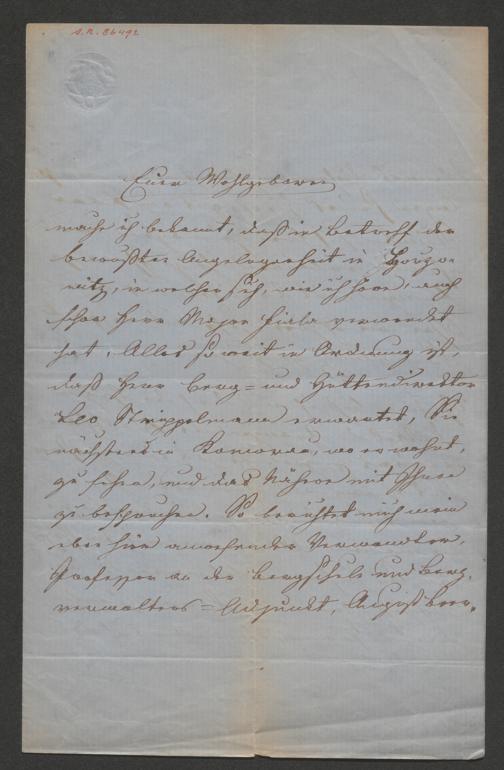 A.N. 86492
Euer Wohlgeboren
mache ich bekannt, daß in Betreff der
bewußten Angelegenheit in Horžo=
witz, in welcher sich, wie ich höre, auch
schon Herr Major Fiala verwendet
hat, Alles so weit in Ordnung ist,
daß Herr Berg= und Hüttendirektor
Leo Strippelmann erwartet, Sie
nächstens in Komorau, wo er wohnt,
zu sehen, und das Nähere mit Ihnen
zu besprechen. So berichtet mich mein
eben hier anwesender Verwandter,
Professor an der Bergschule und Berg=
verwalters=Adjunkt, August Beer.